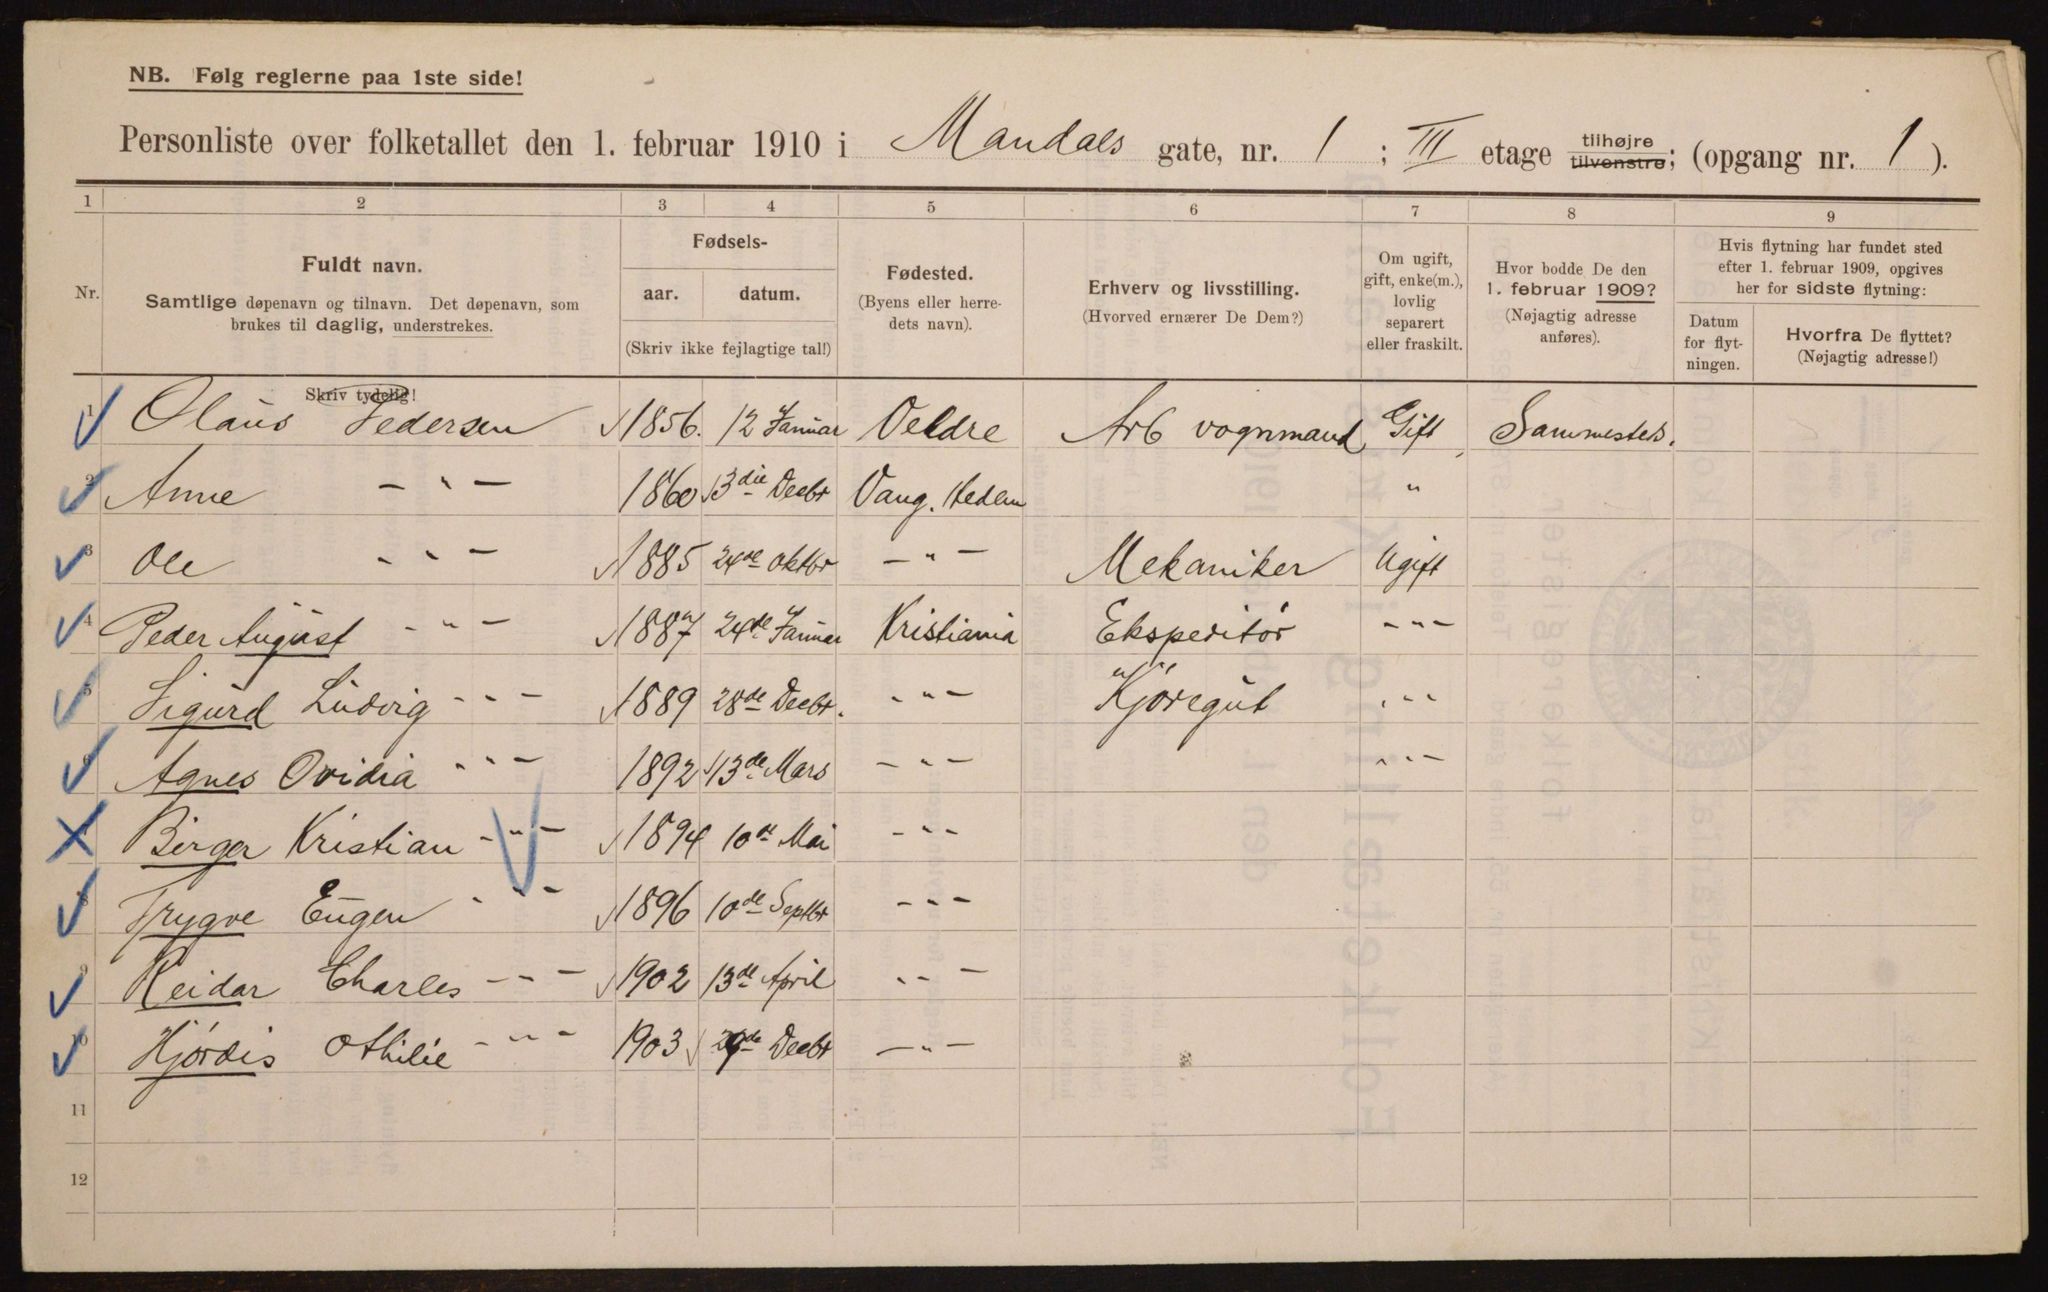 NB. Følg reglerne paa 1ste side!
Personliste over folketallet den 1. februar 1910 i Mandals gate, nr. 1; III etage tilhøjre tilvenstre; (opgang nr. 1).
1 2 3 4 5 6 7 8 9
Nr.
Fuldt navn.
Samtlige døpenavn og tilnavn. Det døpenavn, som
brukes til daglig, understrekes.
Fødsels-
aar. datum.
(Skriv ikke fejlagtige tal!)
Fødested.
(Byens eller herre-
dets navn).
Erhverv og livsstilling.
(Hvorved ernærer De Dem?)
Om ugift,
gift, enke(m.),
lovlig
separert
eller fraskilt.
Hvor bodde De den
1. februar 1909?
(Nøjagtig adresse
anføres).
Hvis flytning har fundet sted
efter 1. februar 1909, opgives
her for sidste flytning:
Datum
for flyt-
ningen.
Hvorfra De flyttet?
(Nøjagtig adresse!)
Skriv tydelig!
1 Olaus Pedersen 1856. 12 Januar Veldre Arb vognmand Gift Sammesteds.
2 Anne - " - 1860 13die Decbr Vang. Hedem "
3 Ole - " - 1885 24de Oktbr - " - Mekaniker Ugift
4 Peder August - " - 1887 24de Januar Kristiania Ekspeditör - " -
5 Sigurd Ludvig - " - 1889 28de Decbr. - " - Kjöregut - " -
6 Agnes Ovidia - " - 1892 13de Mars - " - - " -
7 Birger Kristian - " - 1894 10de Mai - " -
8 Trygve Eugen - " - 1896 10de Septbr - " -
9 Reidar Charles - " - 1902 13de April - " -
10 Hjördis Othilie - " - 1903 Decbr - " -
11
12